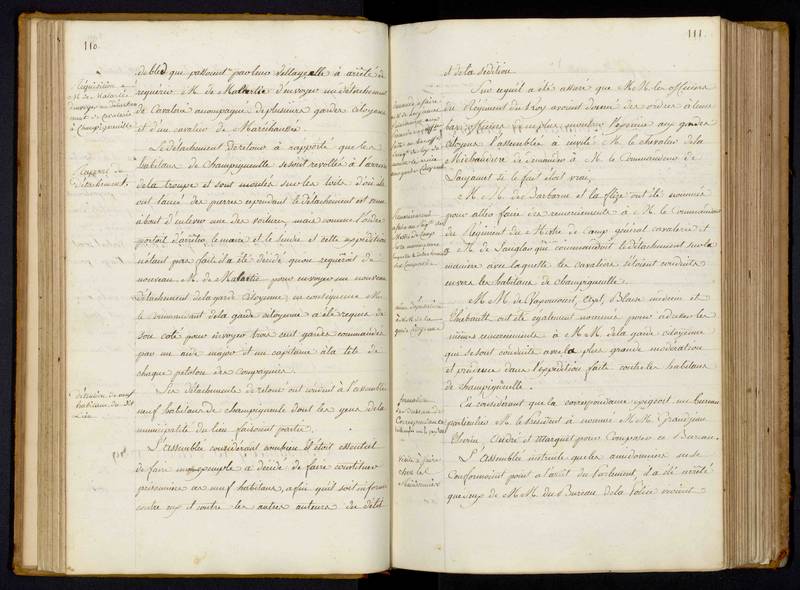 110.
Réquisition à
M. de Malartic
d'envoyer un détache
ment de Cavalerie
à Champigneulle
de bled qui passoient par leur village, elle à arrêté de
requérir M. de Malartic d'envoyer un détachement
de Cavalerie accompagné de plusieurs gardes citoyens
et d'un cavalier de Maréchaussée.
Rapport du
détachement.
Le détachement de retour à rapporté que les
habitans de Champigneulle se sont revoltés à l'arrivée
de la troupe et sont montés sur les toits d'où ils
ont lancé des pierres cependant le détachement est venu
about d'enlever une des voitures, mais comme l'ordre
portoit d'arrêter le maire et le Sindic et cette expédition
n'étant pas faite il a été décidé qu'on requéroit de
nouveau M. de Malartic pour envoyer un nouveau
détachement de la garde Citoyenne, en conséquence M.
le commandant de la garde citoyenne a été requis de
son coté pour envoyer trois cent gardes commandés
par un aide major et un capitaine à la tête de
chaque peloton des Compagnies.
détention de neuf
habitans du dit
Lieu
Ces détachements de retour ont conduit à l'assemblée
neuf habitans de champigneule dont les gens de la
municipalité du lieu faisoient partie.
L'assemblée considérant combien il étoit essentiel
de faire un exemple a décidé de faire constituer
prisonniers ces neuf habitans, afin qu'il soit informé
contre eux et contre les autres auteurs du délit
111.
et de la sédition.
Sur ce qu'il a été assuré que M.M. les officiers
du Régiment du Roy avoient donné des ordres à leurs
bas officiers de ne plus montrer l'exercice aux gardes
citoyens l'assemblée a invité M. le chevalier de la
de demander à M. le Commandant de
si le fait étoit vrai,
Remerciement
M. M. de Barbarat et la flize ont été nommés
pour aller faire des remerciements à M. le Commandant
du Régiment du Mestre de Camp général cavalerie et
à M. de qui commandoit le détachement sur la
manière avec laquelle les cavaliers s'étoient conduits
envers les habitans de champigneulle.
idem députation
à M.M. de la
garde Citoyenne
M. M. de Blaise médecin et
Thiebault ont été également nommés pour adresser les
mêmes remerciements à M.M. de la garde citoyenne
qui se sont conduits avec la plus grande modération
et prudence dans l'expédition faite contre les habitans
de champigneulle.
formation
d'un Bureau de
Correspondance
En considérant que la correspondance exigeoit un bureau
particulier M. le Président à nommé M.M. Grandjean
et pour Composer ce Bureau.
visite à faire
chez les
Amidonniers
L'Assemblée instruite que les amidonniers ne se
Conformoient point à l'arrêt du Parlement, il a été arrêté
que ceux de M.M. du Bureau de la Police